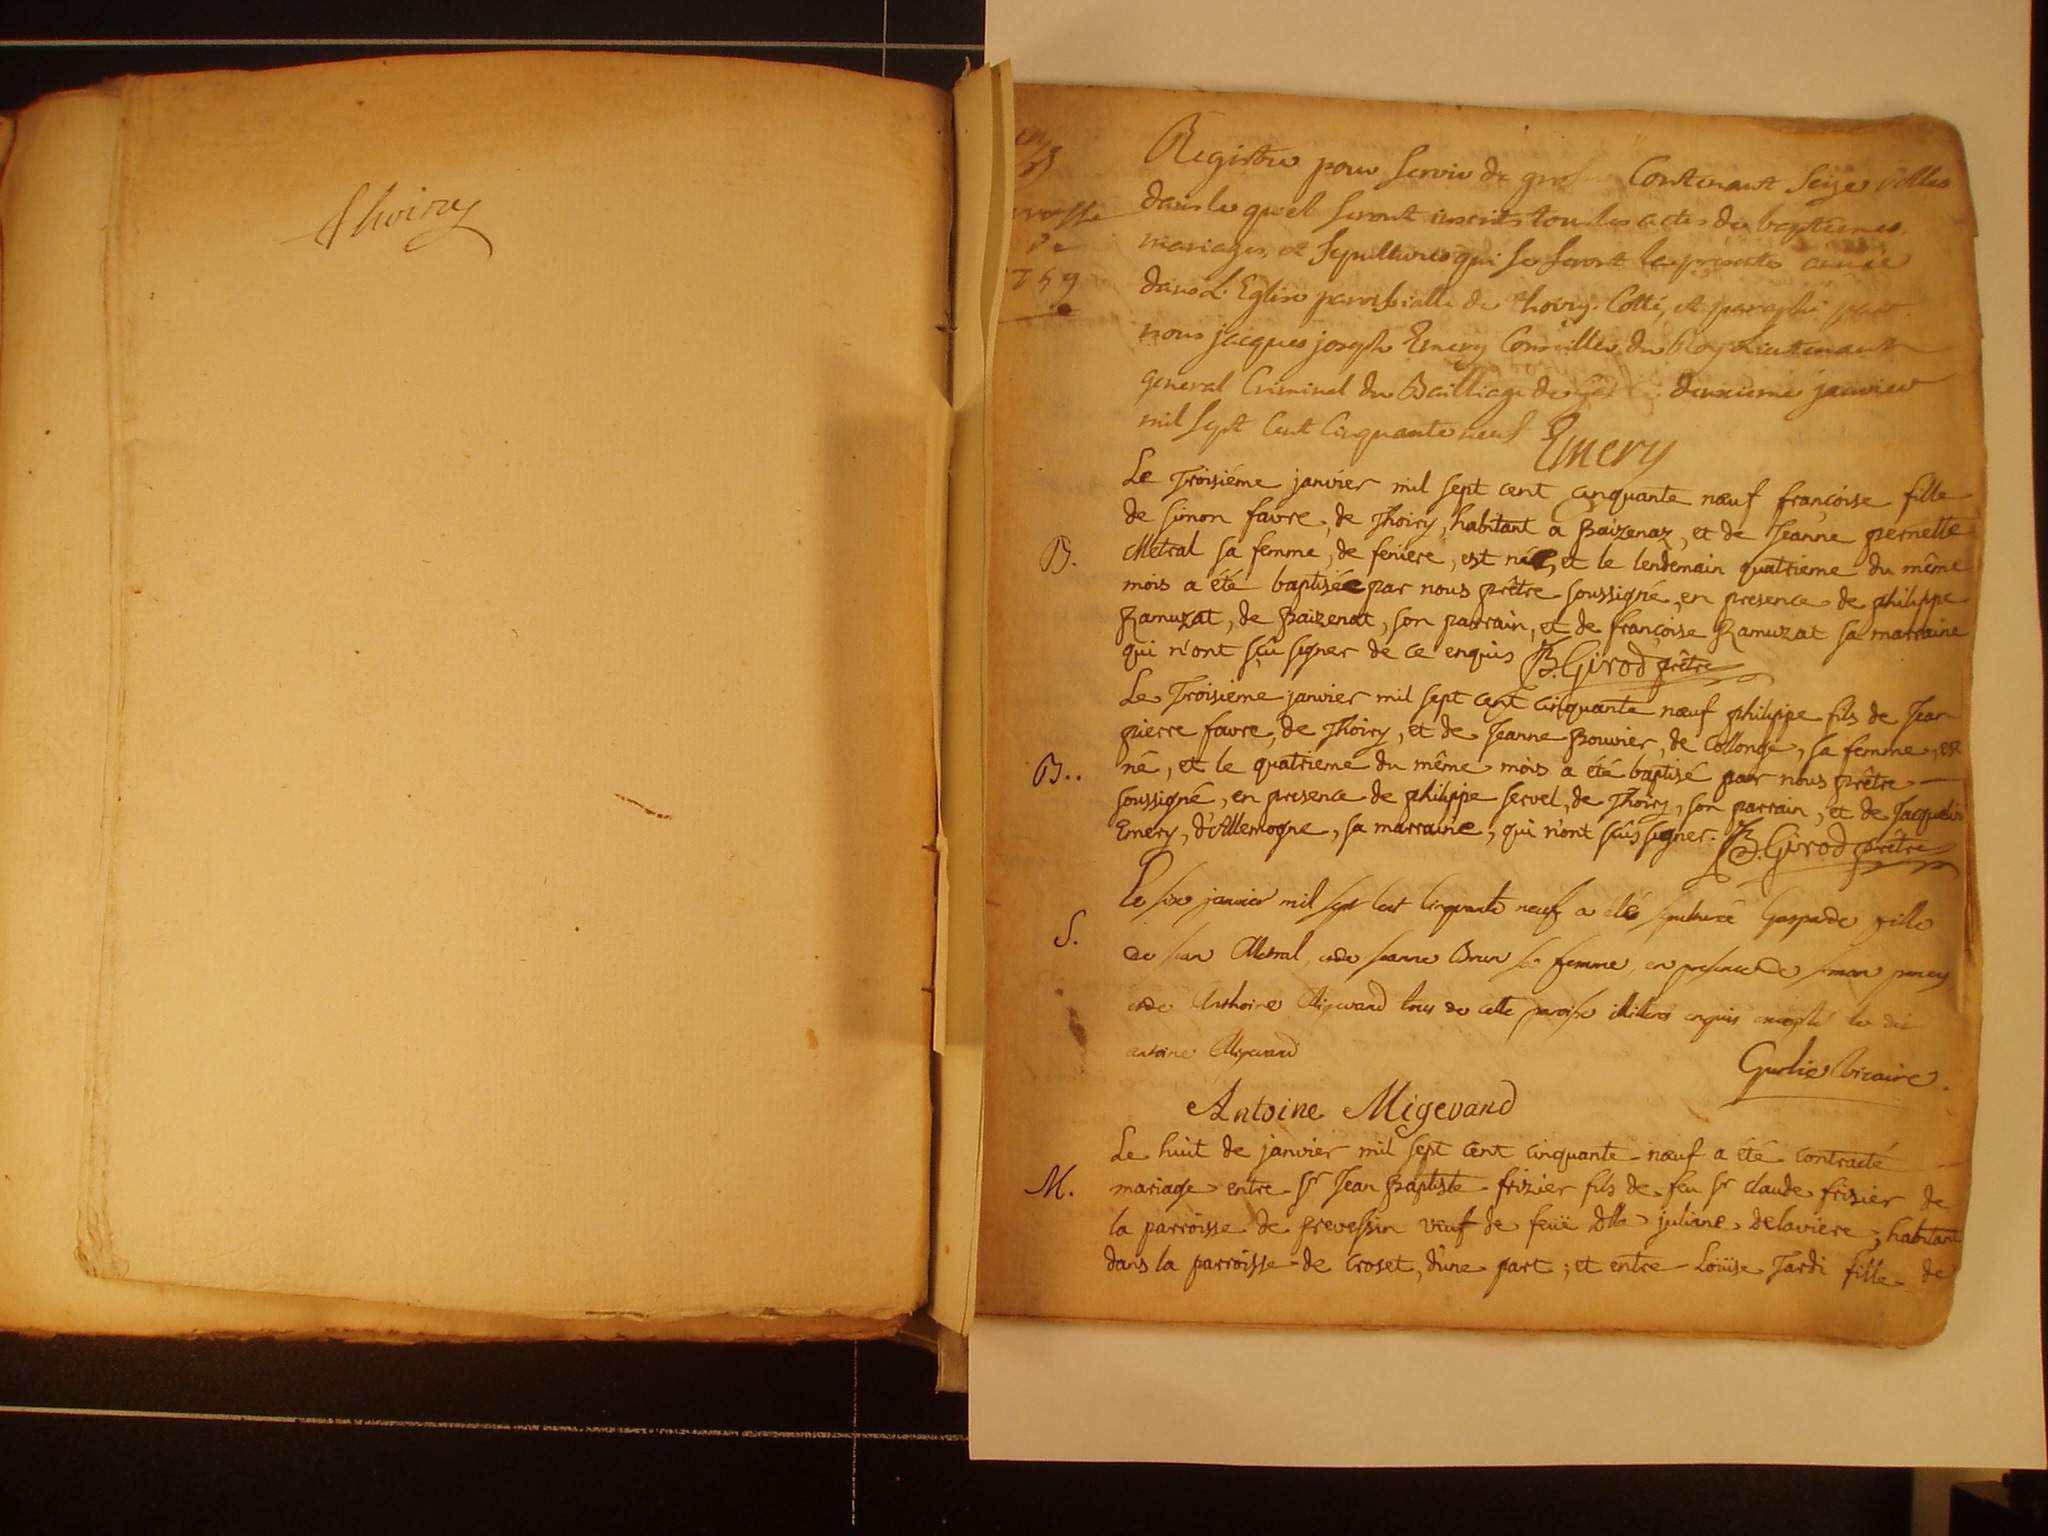 Thoiry
1759
Registre pour servir de gros Contenant Seize rolles
dans le quel seront inscrits tous les actes de baptemes
mariages, et Sepultures qui se feront la presente année
dans L'Eglise paroissialle de thoiry. Cotté, et paraphé par
nous jacques joseph Emery Conseiller du Roy Lieutenant
general Criminel du Bailliage de Gex le deuxieme janvier
mil sept Cent Cinquante neuf Emery
B.
Le Troisiéme janvier mil sept cent cinquante nœuf françoise fille
de simon favre, de Thoiry, habitant a Baizenaz, et de Jeanne pernette
Metral sa femme, de feniere, est née, et le lendemain quatrieme du même
mois a été baptisée par nous prêtre soussigné, en presence de philippe
Ramuzat, de Baizenat, son parrain, et de françoise Ramuzat sa marraine
qui n'ont sçû signer de ce enquis B. Girod prêtre
B..
Le Troisiéme janvier mil sept cent cinquante nœuf philippe fils de Jean
pierre favre, de Thoiry, et de Jeanne Bouvier, de Collonge, sa femme, est
né, et le quatrieme du même mois a été baptisé par nous prêtre
soussigné, en presence de philippe servel, de Thoiry, son parrain, et de Jacqueline
Emery, d'Allemogne, sa marraine, qui n'ont sçûs signer. B. Girod prêtre
S.
Le six janvier mil sept cent Cinquante neuf a été sepulturé Gasparde fille
de jean Metral, et de jeanne Brun sa femme, en presence de simon
et de Anthoine Migevand tous de cette paroisse illiteres enquis excepté le dit
antoine Migevand
Vicaire.
Antoine Migevand
M.
Le huit de janvier mil sept cent cinquante-nœuf a été contracté
mariage entre Sr Jean Baptiste frizier fils de feu Sr claude frisier de
la parroisse de prevessin veuf de feuë Dlle juliane Delaviere, habitant
dans la parroisse de croset, d'une part; et entre Loüise Tardi fille de